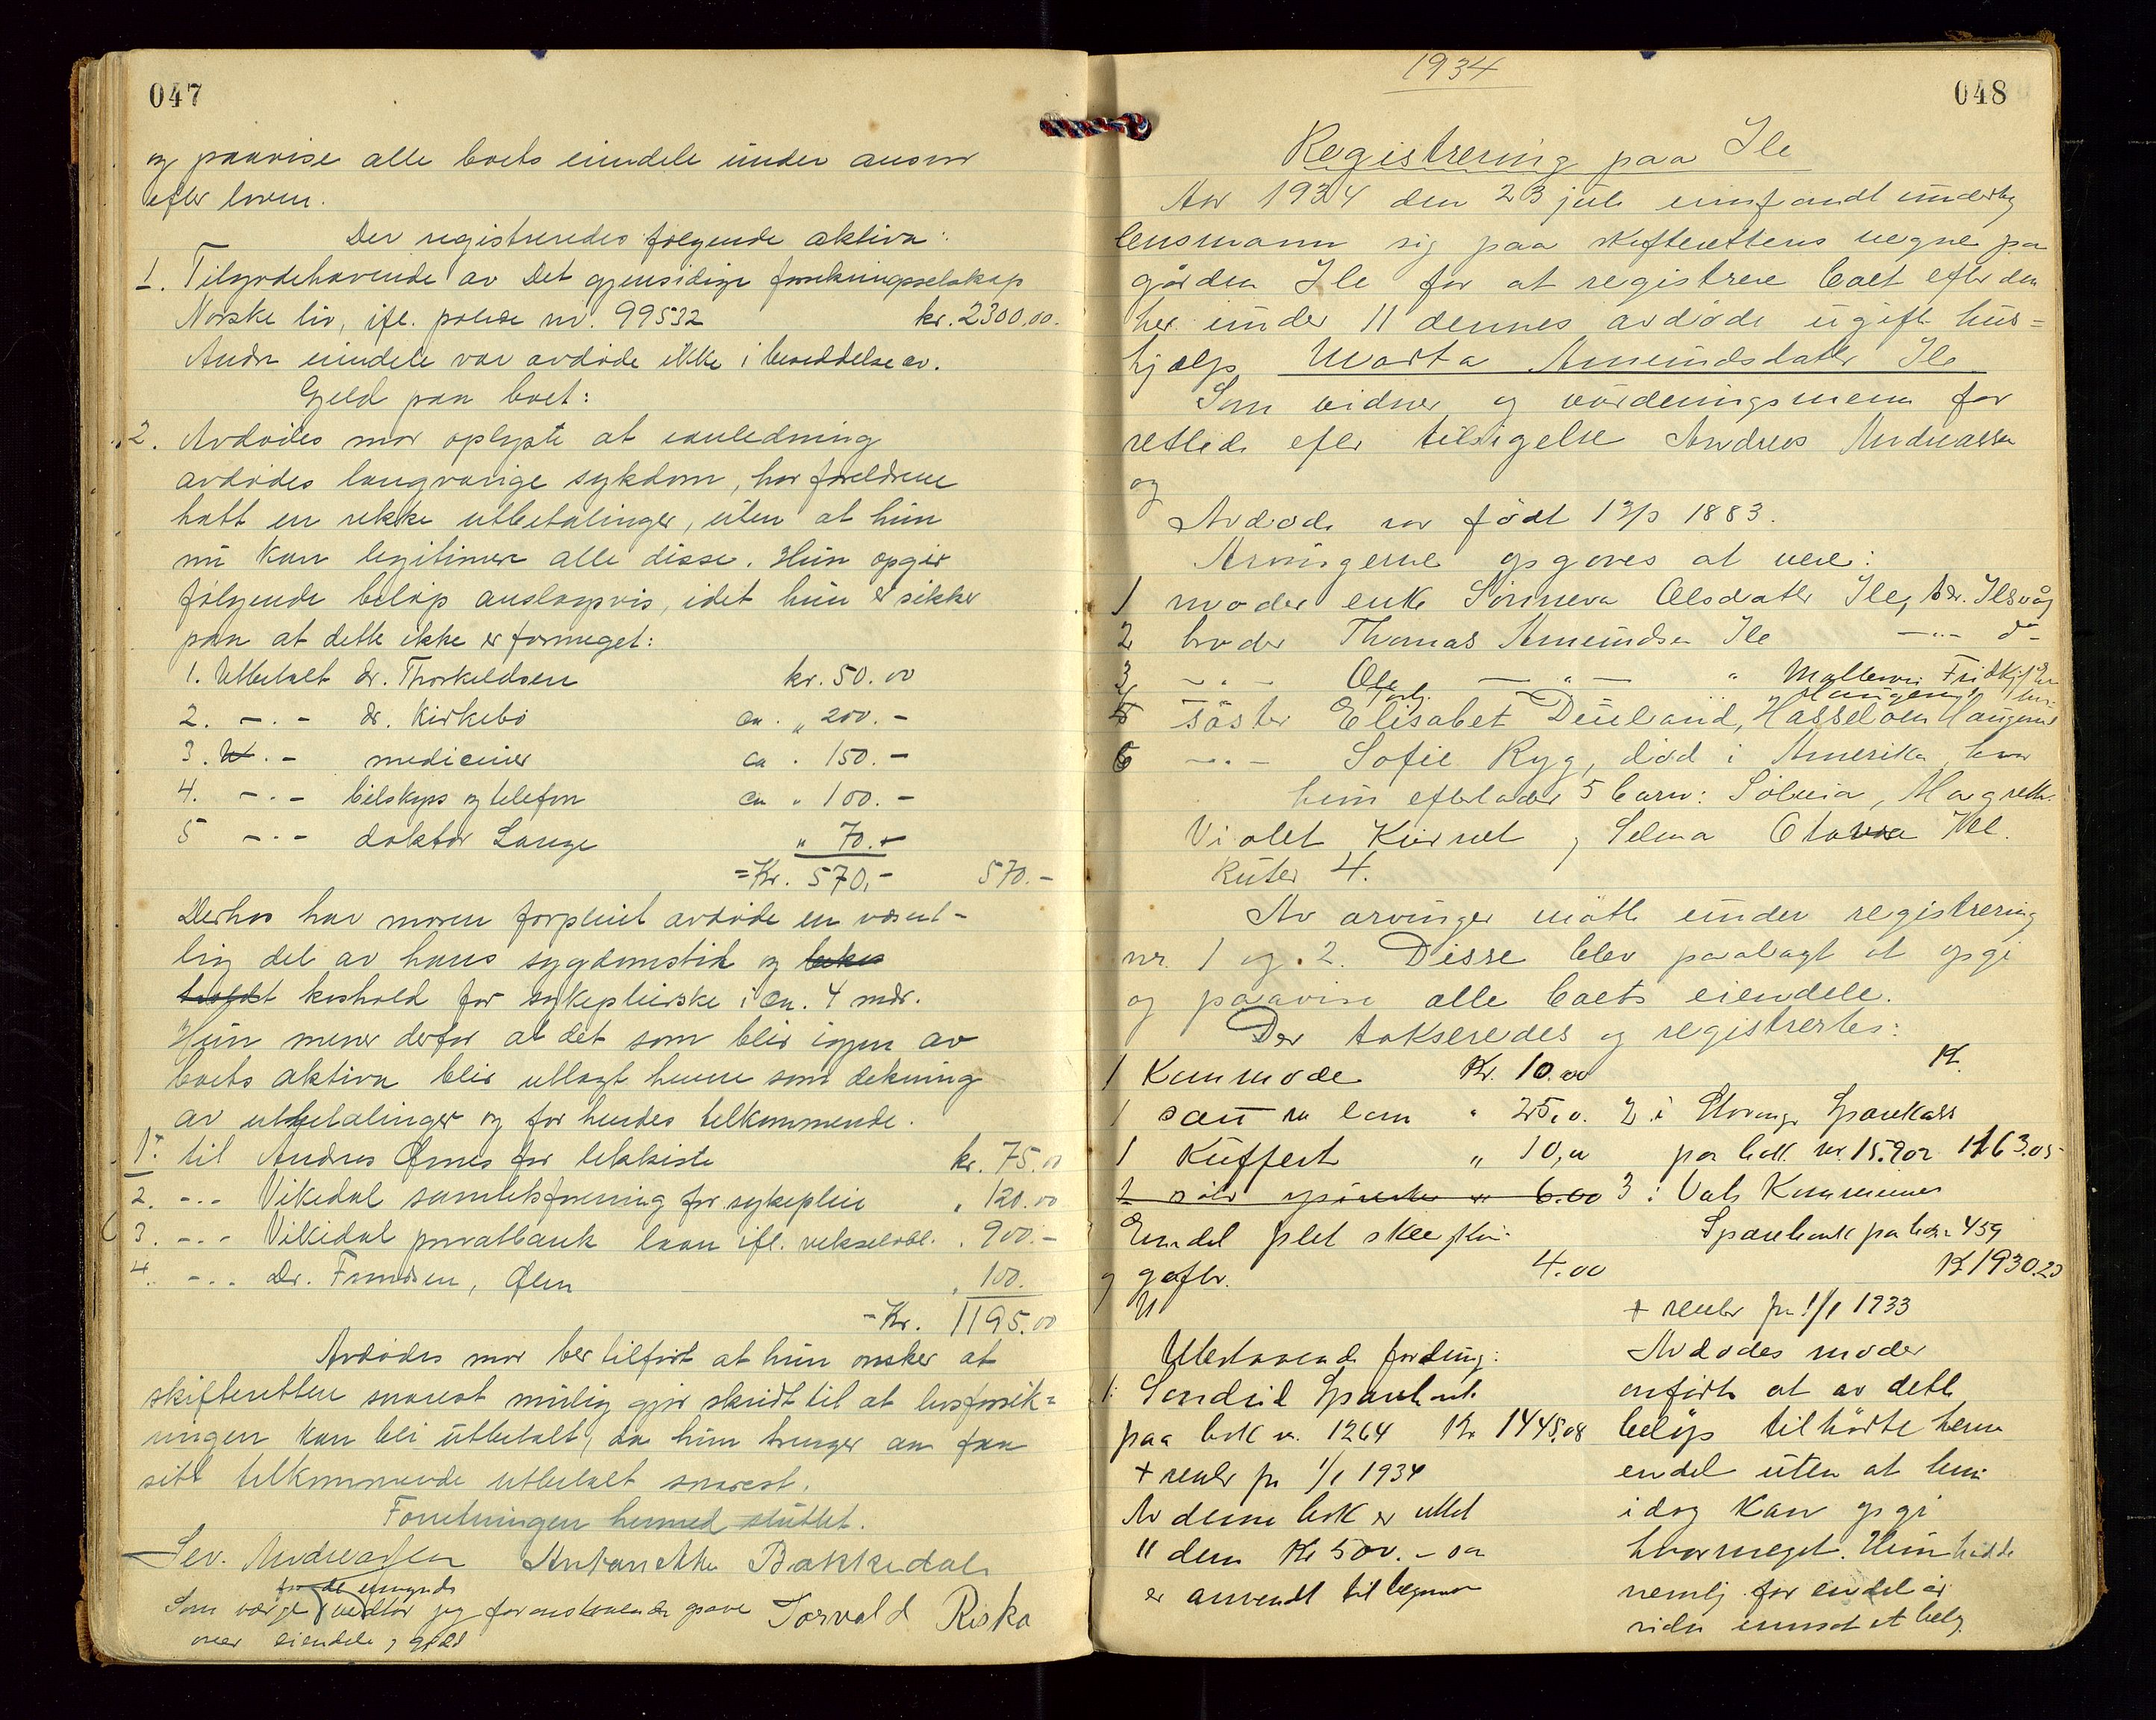 047
og paavise alle boets eiendele under ansvar
efter loven.
Der registreredes følgende aktiva:
1. Tilgodehavende av Det gjensidige forsikringsselskap
Norske liv, ifl. polise nr. 99532 kr. 2300,00.
Andre eiendele var avdøde ikke i besiddelse av.
Gjeld paa boet:
2. Avdødes mor oplyste at i anledning
avdødes langvarige sykdom, har foreldrene
hatt en rekke utbetalinger, uten at hun
nu kan legitimere alle disse. Hun opgir
følgende beløp anslagsvis, idet hun er sikker
paa at dette ikke er formeget:
1. Utbetalt dr. Thorkildsen kr. 50.00
2. -.- dr. Kirkebø ca. " 200.-
3. -.- mediciner ca. " 150.-
4. -.- bilskyss og telefon ca. " 100.-
5 -.- doktor Lange " 70.-
=Kr. 570,- 570.-
Derhos har moren forpleiet avdøde en vesent-
lig del av hans sygdomstid og
kosthold for sykepleierske i ca. 4 mdr.
Hun mener derfor at det som blir igjen av
boets aktiva blir utlagt henne som dekning
av utbetalinger og for hendes tilkommende.
1. til Andreas Ørnes for likkiste kr. 75.00
2. -.- Vikedal sanitetsforening for sykepleie " 120.00
3. -.- Vikedal privatbank laan ifl. vekselobl. " 900.-
4. -.- Dr. Frandsen, Ølen " 100.
=Kr. 1195.00
Avdødes mor ber tilført at hun ønsker at
skifteretten snarest mulig gjør skridt til at livsforsik=
ringen kan bli utbetalt, da hun trenger aa faa
sitt tilkommende utbetalt snarest.
Forretningen hermed sluttet.
Sev. Andreassen Antonette Bakkedal
for de umynde
Som verge vedtar jeg foranstaaende opgave Torvald Riska
over eiendele og gjeld
1934
048
Registrering paa Ile
Aar 1934 den 23 juli innfandt underteg
lensmann sig paa skifterettens vegne paa
gården Ile for at registrere boet efter den
her under 11 dennes avdøde ugift hus=
hjelp Marta Amundsdatter Ile
Som vidner og vurderingsmenn for
rettede efter tilsigelse Andreas Andreassen
og
Avdøde var født 13/3 1883.
Arvingerne opgaves at være:
1 moder enke Sønneva Olsdatter Ile, adr. Ilsvåg
2 broder Thomas Amundsen Ile -"- do-
3 -.- Ole -"- "
5 søster Elisabet Dueland, Hasseløen Haugesund
6 -.- Sofie Ryg, død i Amerika, hvor
hun efterlader 5 barn: Solveia, Magrethe
Violet og Selma
4.
Av arvinger møtte under registrering
nr. 1 og 2. Disse blev paalagt at opgi
og paavise alle boets eiendele.
Der takseredes og registrertes:
1 Kommode Kr. 10.00 Kr.
1 sau m lam " 25,0. 2 i Stavang. Sparekass
1 Kuffert " 10,00 paa bok nr. 15.902 1163.05
3 i Vats Kommunes
Endel plet skeer
Sparebank paa bok 459
og gafler. 4.00 Kr 1930.20
+ renter fra 1/1 1933
Utestaaende fordring: Avdødes moder
1. Sandeid Sparebank anførte at av dette
paa bok nr. 1264 Kr 1445.08 beløp tilhørte henne
+ renter fra 1/1 1934 endel uten at hun
Av denne bok er uttat idag kan opgi
11 dennes Kr 500.- som hvormeget. Hun hadde
er anvendt til begravelse nemlig for endel år
siden innsat et beløp